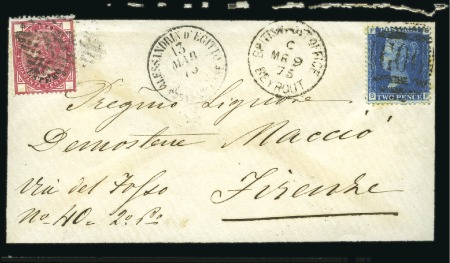 ALESSANDRIA D'EGITTO
17
MAR
75
BRITISH POST OFFICE
C
MR 9
75
BEYROUT
TWO PENCE
Pregmo Signore
Demostene Macciò
Via del Fosso
No. 40 = 2o. Po
Firenze